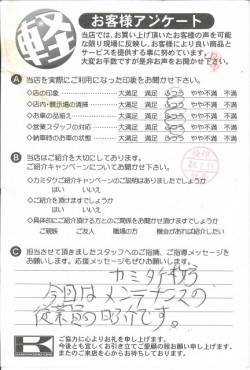 軽
お客様アンケート
当店では、お買い上げ頂いたお客様の声を可能
な限り現場に反映し、お客様により良い商品と
サービスを提供する事に努めています。
大変お手数ですが是非お声をお聞かせ下さい。
A 当店を実際にご利用になった印象をお聞かせ下さい。
◇店の印象 大満足 満足 ふつう やや不満 不満
◇店内・展示場の清掃 大満足 満足 ふつう やや不満 不満
◇お車の品揃え 大満足 満足 ふつう やや不満 不満
◇営業スタッフの対応 大満足 満足 ふつう やや不満 不満
◇納車時のお車の状態 大満足 満足 ふつう やや不満 不満
B 当店はご紹介を大切にしてあります。
ご紹介キャンペーンについてお聞かせ下さい。
◇カミタケご紹介キャンペーンのご説明はありましたでしょうか
はい いいえ
◇ご紹介を頂けますでしょうか
はい いいえ
◇具体的にご紹介頂ける方とのご関係をお聞かせ頂けますでしょうか
ご親族 ご友人 職場の方 機会があれば紹介したい
C 担当させて頂きましたスタッフへのご指摘、ご指導メッセージを
お願いします。応援メッセージもぜひお願いします。
今回はメンテナンスの
従業員の紹介です。
K
ご協力に心よりお礼を申し上げます。
今後とも宜しくお引き立てご愛顧の程お願い申し上げます。
またのご来店を心からお待ちしております。